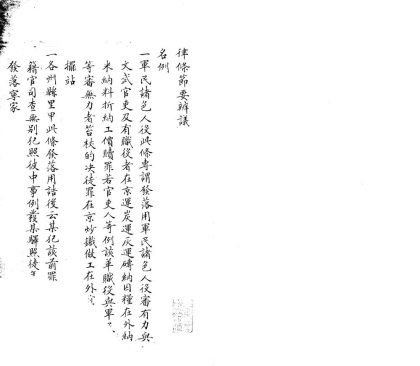 律條節要辨議
名例
一軍民諸色人役此條專謂發落用軍民諸色人役審有力與
文武官吏及有職役者在京運炭運灰運磚納囚糧在外納
米納料折納工價贖罪若官吏人等例該革職役與軍
等審無力者笞杖的決徒罪在京炒鐵做工在外
擺站
一各州縣里甲此條發落用語後云某犯該前罪
籍官司查無別犯照彼中事例發某驛照徒
發落寧家